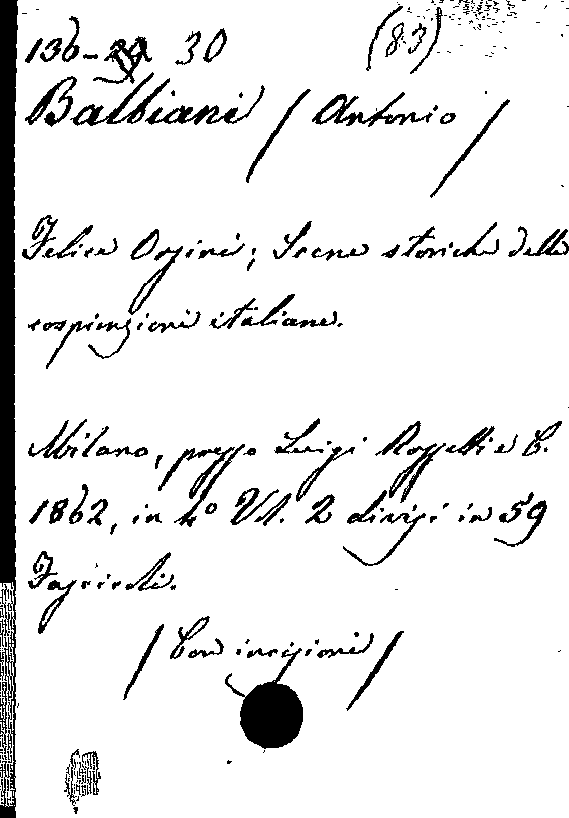 136-29 30 (83)
Balbiani / Antonio /
Felice Orsini; Scene storiche delle
cospirazioni italiane.
Milano, presso Luigi Rossetti e C.
1862, in 4º Vol. 2 divisi in 59
Fascicoli.
/ Con incisioni /